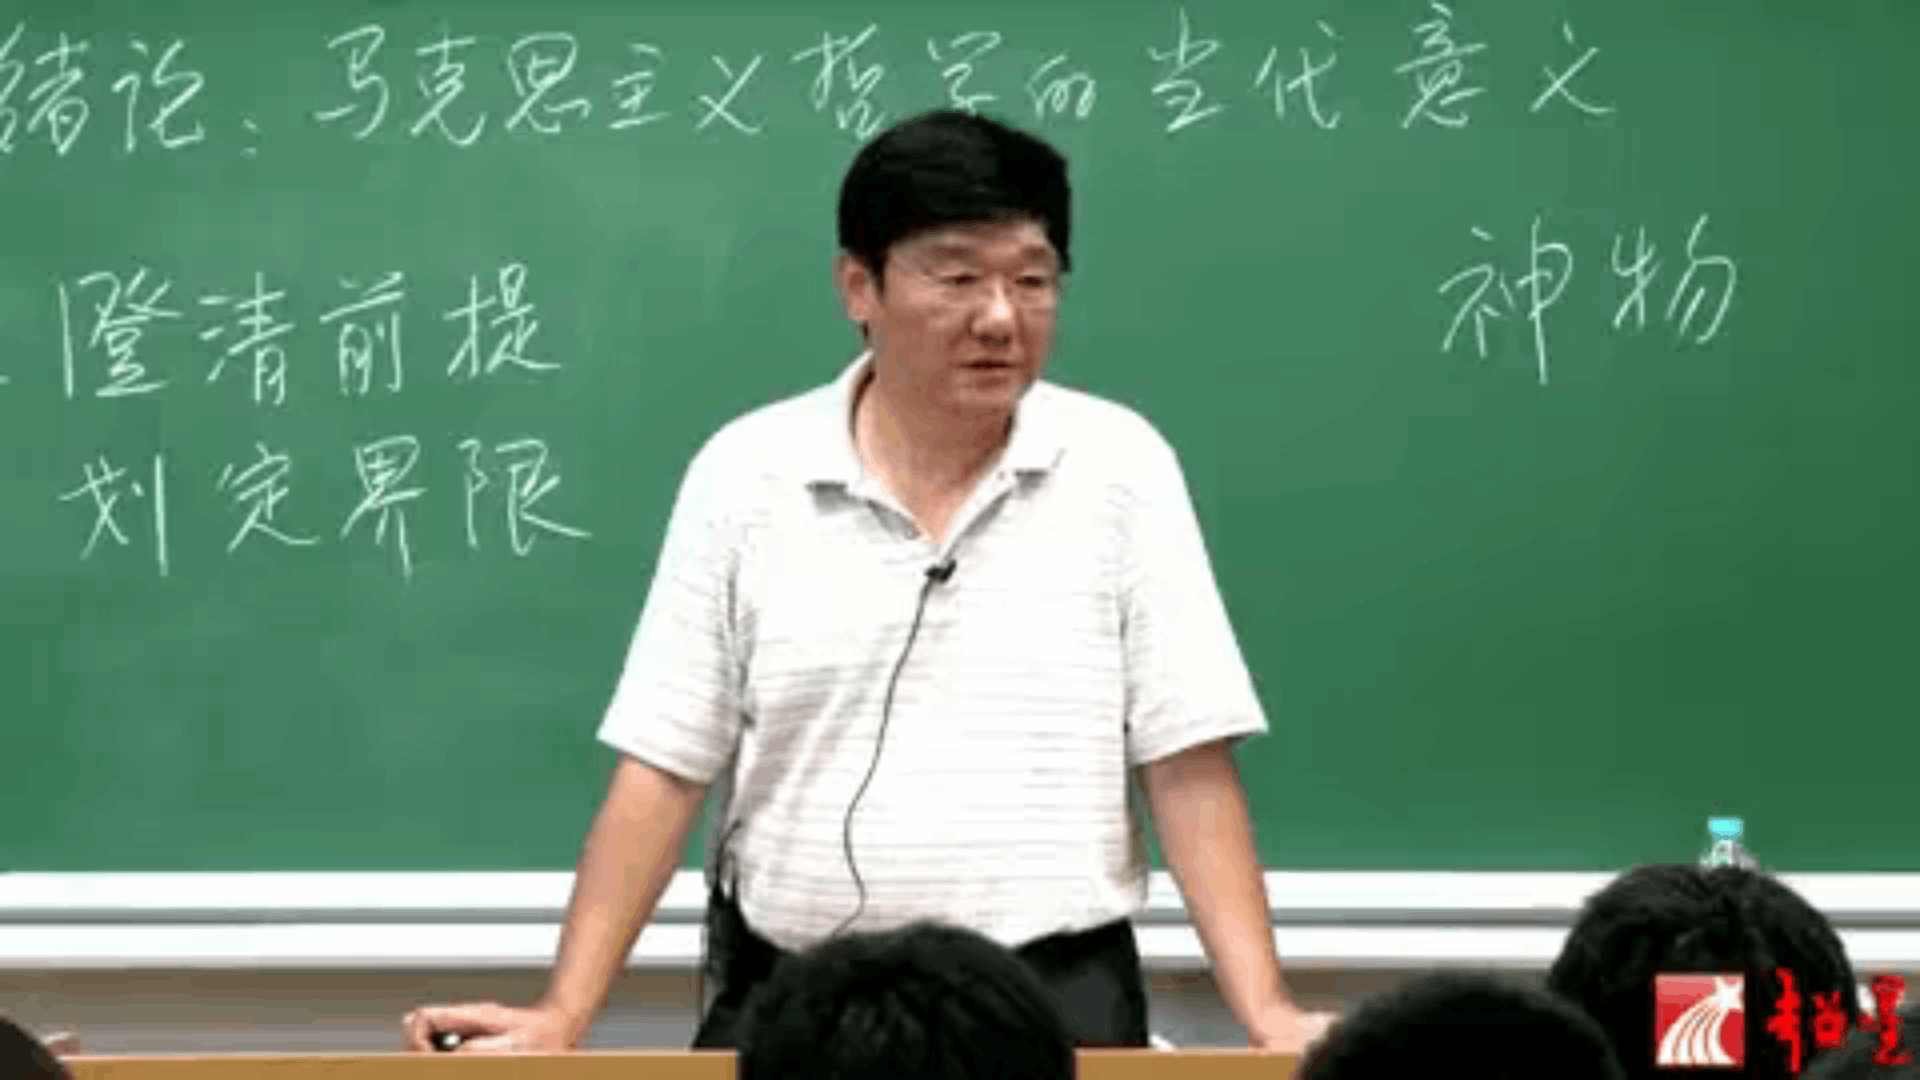 绪论：马克思主义哲学的当代意义
神物
澄清前提
划定界限
超星